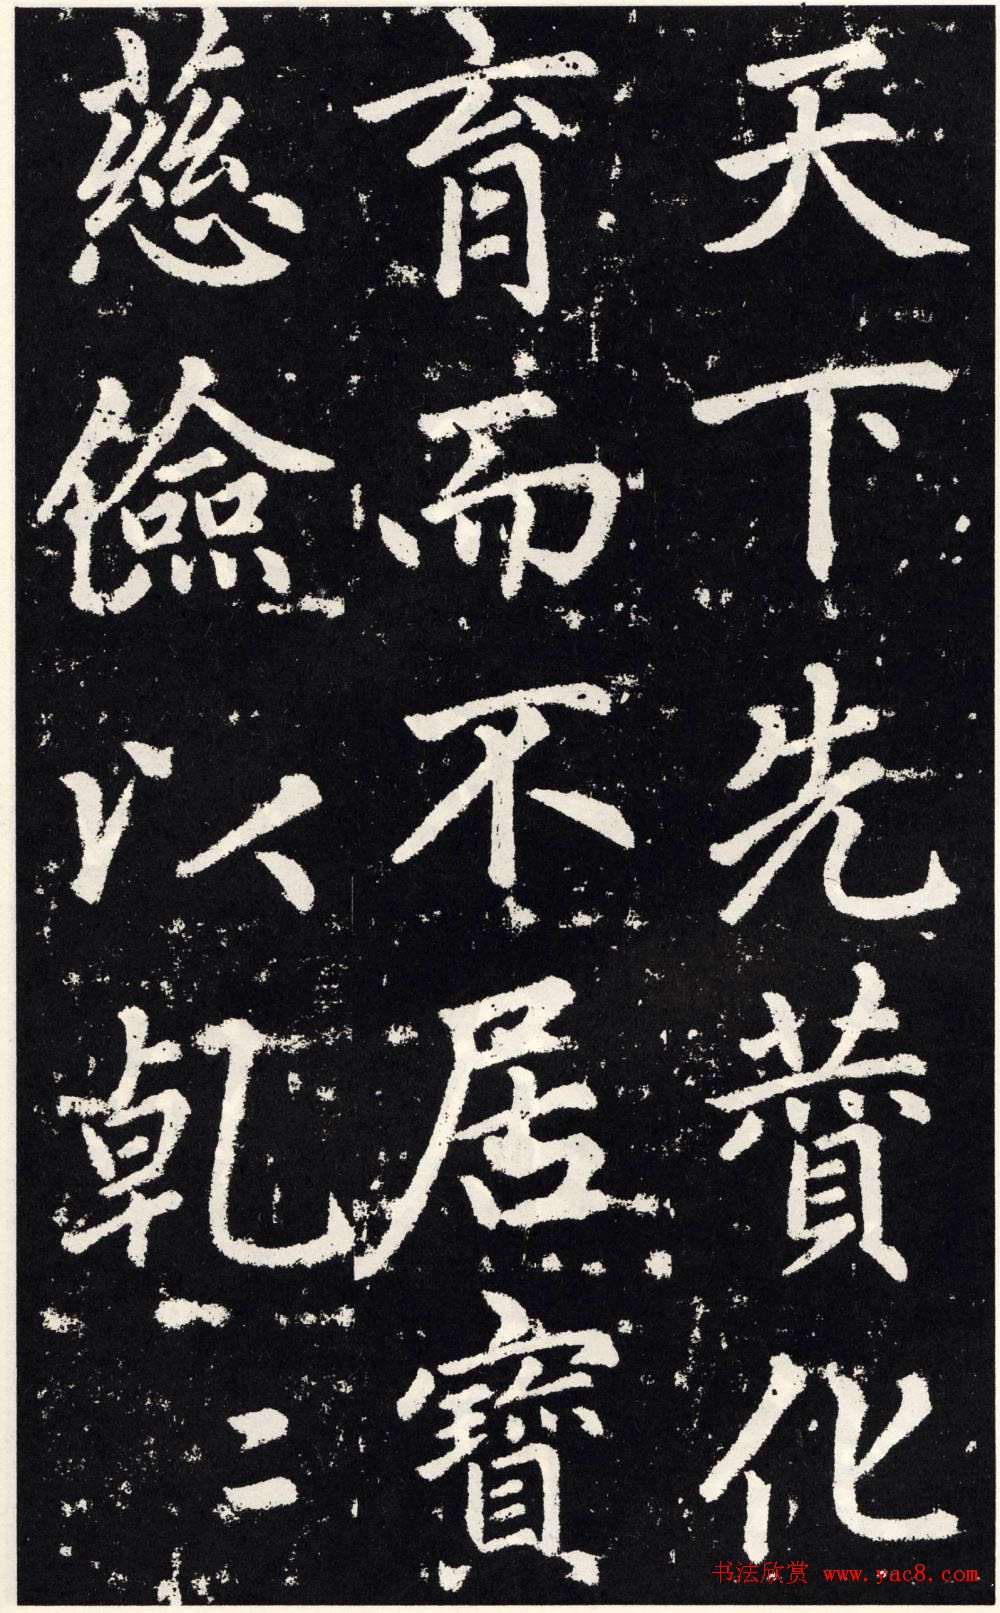 天下先赞化
育而不居寳
慈儉以乹二
书法欣赏 www.yac8.com